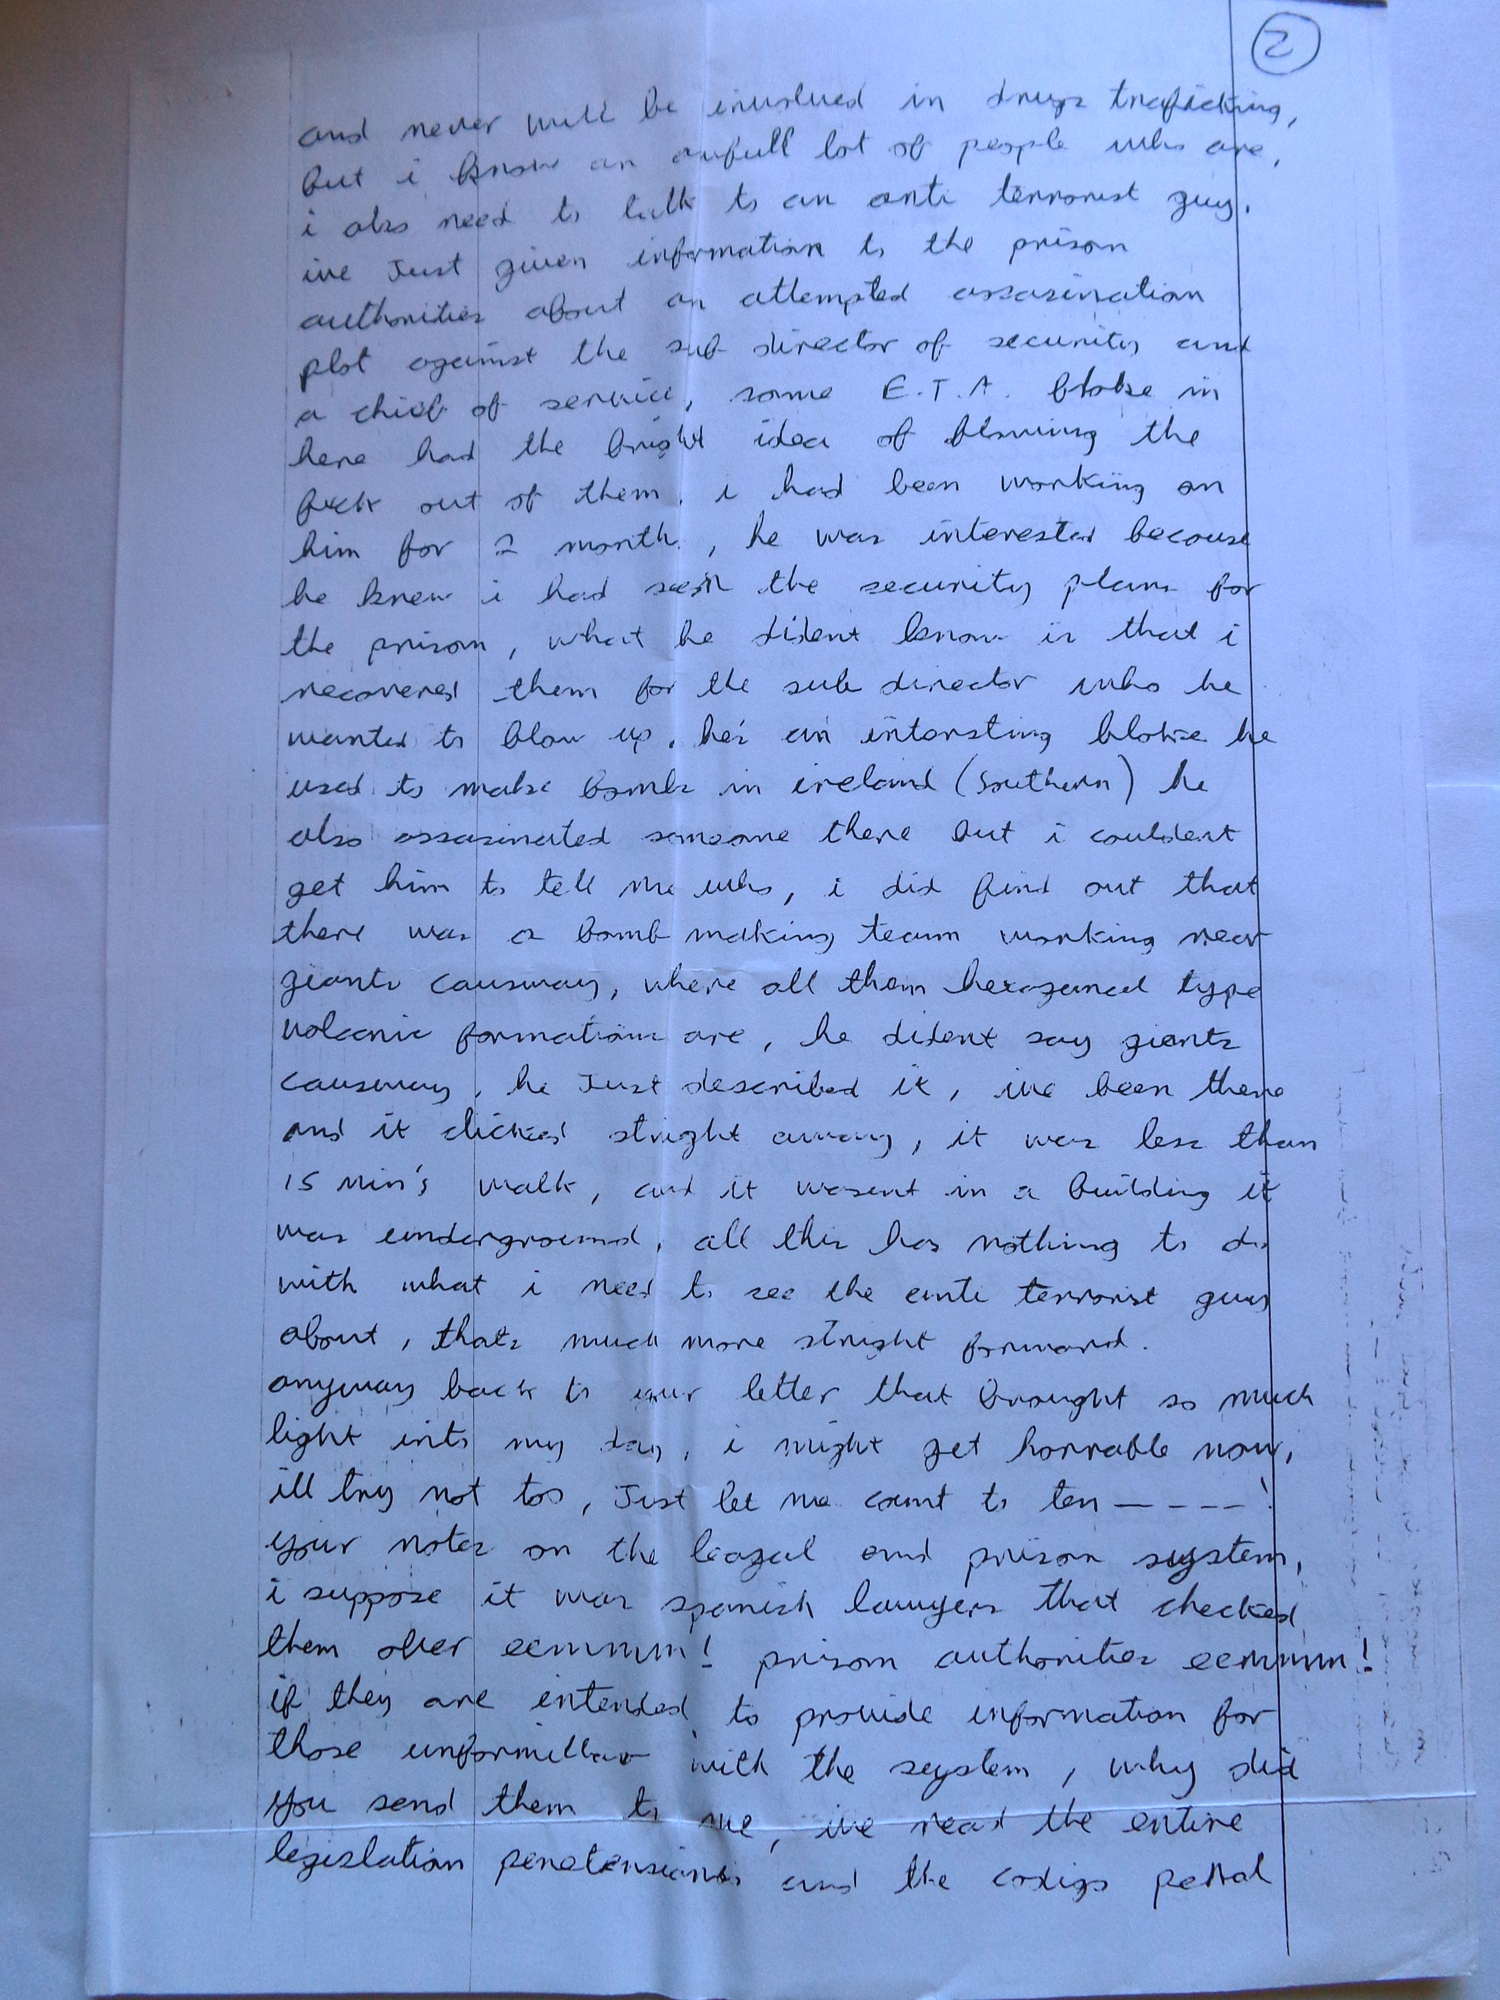 2
and never will be involved in drugs traficking,
but i know an awfull lot of people who are,
i also need to talk to an anti terrorist guy.
ive Just given information to the prison
authorities about an attempted assasination
plot against the sub director of security and
a chief of service, some E.T.A. bloke in
here had the bright idea of blowing the
fuck out of them. i had been working on
him for 2 month, he was interested because
he knew i had seen the security plans for
the prison, what he dident know is that i
recovered them for the sub director who he
wanted to blow up, he's an intersting bloke he
used to make bombs in ireland (Southern) he
also assasinated someone there but i couldent
get him to tell me who, i did find out that
there was a bomb making team working near
giants causway, where all them hexaganal type
volcanic formations are, he dident say giants
causway, he Just described it, ive been there
and it clicked stright away, it was less than
15 min's walk, and it wasent in a building it
was underground, all this has nothing to do
with what i need to see the anti terrorist guy
about, thats much more stright forward.
anyway back to your letter that brought so much
light into my day, i might get horrable now,
ill try not too, Just let me count to ten – – – – –!
your notes on the leagal and prison system,
i suppose it was spanish lawyers that checked
them over eemmm! prison authorities eemmmm!
if they are intended to provide information for
those unformillar with the system, why did
you send them to me, ive read the entire
legislation penetensiario and the codigo penal